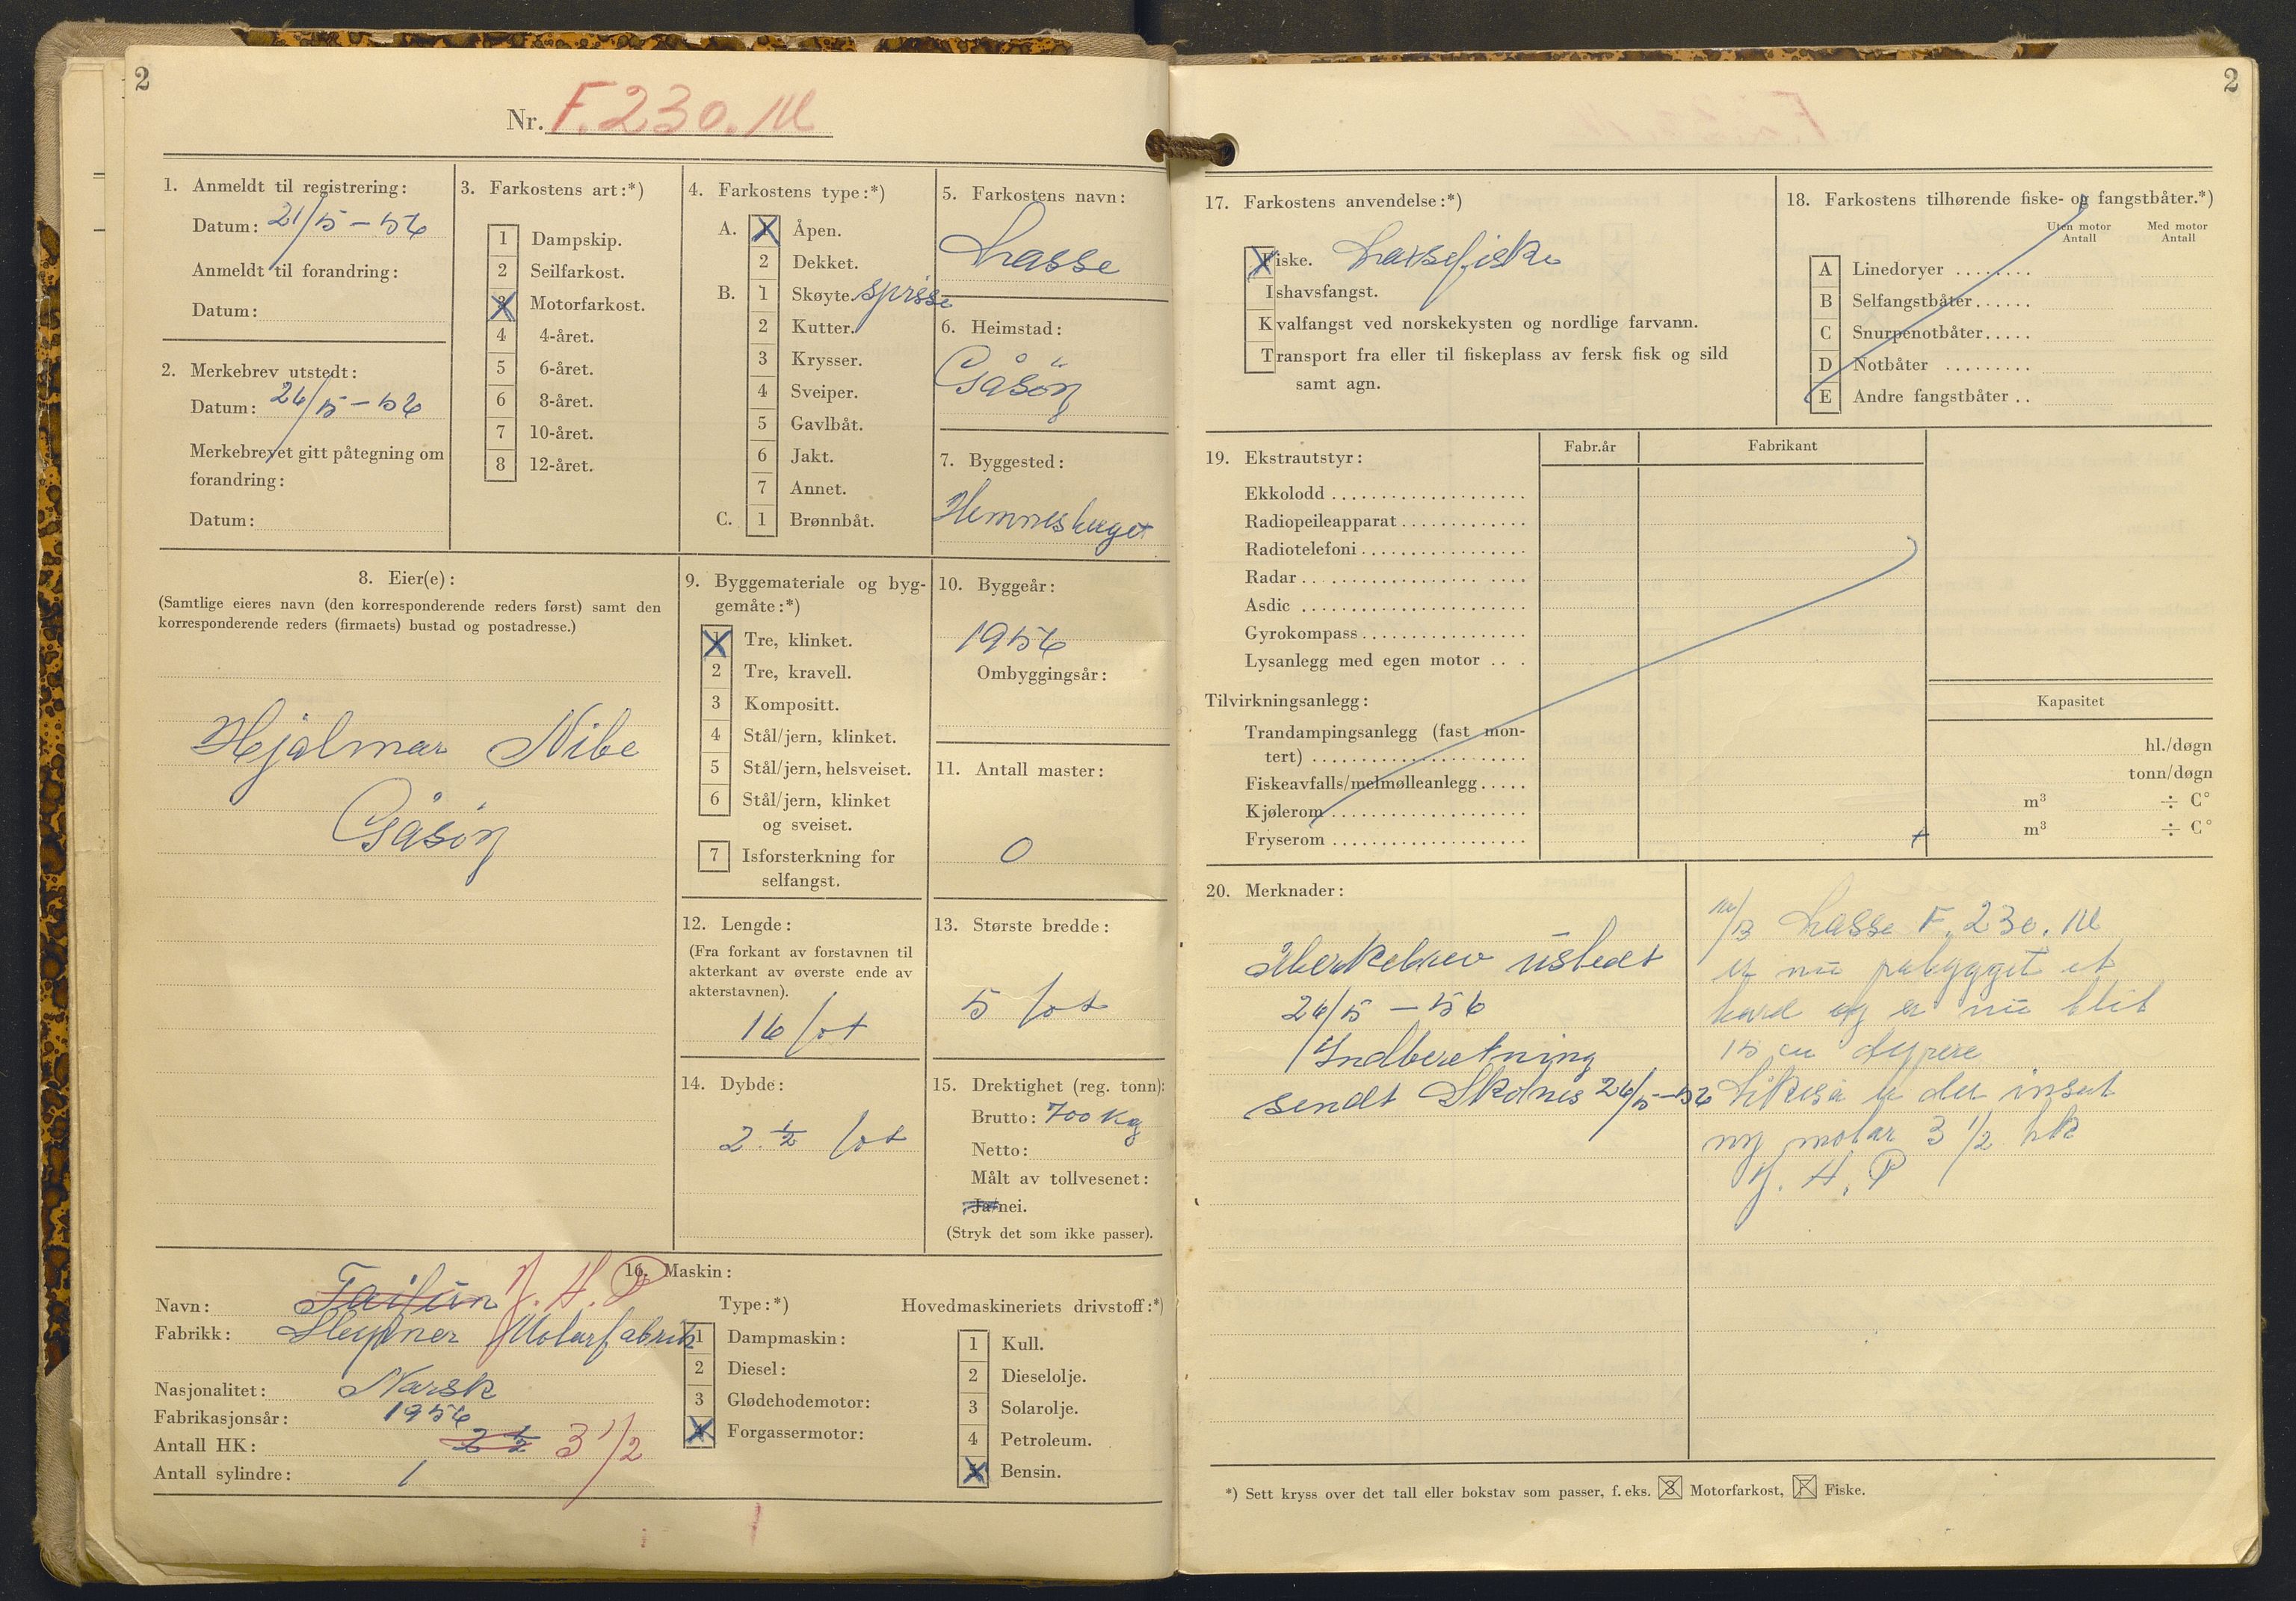 2
Nr. F. 230. M
1. Anmeldt til registrering:
Datum: 21/5 – 56
Anmeldt til forandring:
Datum:
2. Merkebrev utstedt:
Datum: 26/5 – 56
Merkebrevet gitt påtegning om
forandring:
Datum:
3. Farkostens art:*)
1 Dampskip.
2 Seilfarkost.
3 Motorfarkost.
4 4-året.
5 6-året.
6 8-året.
7 10-året.
8 12-året.
4. Farkostens type:*)
A. 1 Åpen.
2 Dekket.
B. 1 Skøyte. spriss
2 Kutter.
3 Krysser.
4 Sveiper.
5 Gavlbåt.
6 Jakt.
7 Annet.
C. 1 Brønnbåt.
5. Farkostens navn:
Lasse
6. Heimstad:
Gåsöy
7. Byggested:
Hemnesberget
8. Eier(e):
(Samtlige eieres navn (den korresponderende reders først) samt den
korresponderende reders (firmaets) bustad og postadresse.)
Hjalmar Nibe
Gåsöy
9. Byggemateriale og byg-
gemåte:*)
1 Tre, klinket.
2 Tre, kravell.
3 Kompositt.
4 Stål/jern, klinket.
5 Stål/jern, helsveiset.
6 Stål/jern, klinket
og sveiset.
7 Isforsterkning for
selfangst.
10. Byggeår:
1956
Ombyggingsår:
11. Antall master:
0
12. Lengde:
(Fra forkant av forstavnen til
akterkant av øverste ende av
akterstavnen).
16 fot
13. Største bredde:
5 fot
14. Dybde:
2 ½ fot
15. Drektighet (reg. tonn):
Brutto: 700 kg
Netto:
Målt av tollvesenet:
Ja/nei.
(Stryk det som ikke passer).
16. Maskin:
Navn: Taifun J. A. P
Fabrikk: Sleipner Motorfabrik
Nasjonalitet: Norsk
Fabrikasjonsår: 1956
Antall HK: 2 ½ 3 1/2
Antall sylindre: 1
Type:*)
1 Dampmaskin:
2 Diesel:
3 Glødehodemotor:
4 Forgassermotor:
Hovedmaskineriets drivstoff:*)
1 Kull.
2 Dieselolje.
3 Solarolje.
4 Petroleum.
5 Bensin.
2
17. Farkostens anvendelse:*)
Fiske. Laxsefiske
Ishavsfangst.
Kvalfangst ved norskekysten og nordlige farvann.
Transport fra eller til fiskeplass av fersk fisk og sild
samt agn.
18. Farkostens tilhørende fiske- og fangstbåter.*)
Uten motor Med motor
Antall Antall
A Linedoryer
B Selfangstbåter
C Snurpenotbåter
D Notbåter
E Andre fangstbåter
19. Ekstrautstyr:
Fabr.år Fabrikant
Ekkolodd
Radiopeileapparat
Radiotelefoni
Radar
Asdic
Gyrokompass
Lysanlegg med egen motor
Tilvirkningsanlegg:
Kapasitet
Trandampingsanlegg (fast mon-
tert) hl./døgn
Fiskeavfalls/melmølleanlegg tonn/døgn
Kjølerom m³ ÷ C°
Fryserom m³ ÷ C°
20. Merknader:
Merkebrev üstedt
26/5 – 56
Indberetning
sendt Skolnes 26/5–56
M/B Lasse F. 230. M
er nü påbygget et
bord og er nü blit
15 cm dypere
Likeså er der insat
ny motor 3 1/2 hk
J. A. P
*) Sett kryss over det tall eller bokstav som passer, f. eks. 3 Motorfarkost, F Fiske.